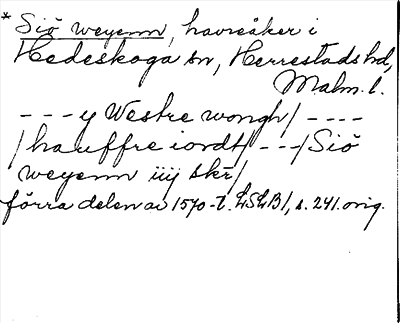 * Siö weyenn, havreåker i
Hedeskoga sn, Herrestads hd,
Malm. l.
- - - y Westre wongh/ - - - -
/hauffre iordt/ - - -/Siö
weyenn iiij skr/
förra delen av 1570-t. LSLB/, s. 241. orig.